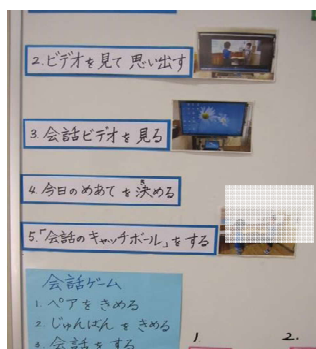 2.ビデオを見て思い出す
3.会話ビデオを見る
4.今日のめあてを決める
5.「会話のキャッチボール」をする
会話ゲーム
1.ペアをきめる
2.じゅんばんをきめる
3.会話をする
1 2.